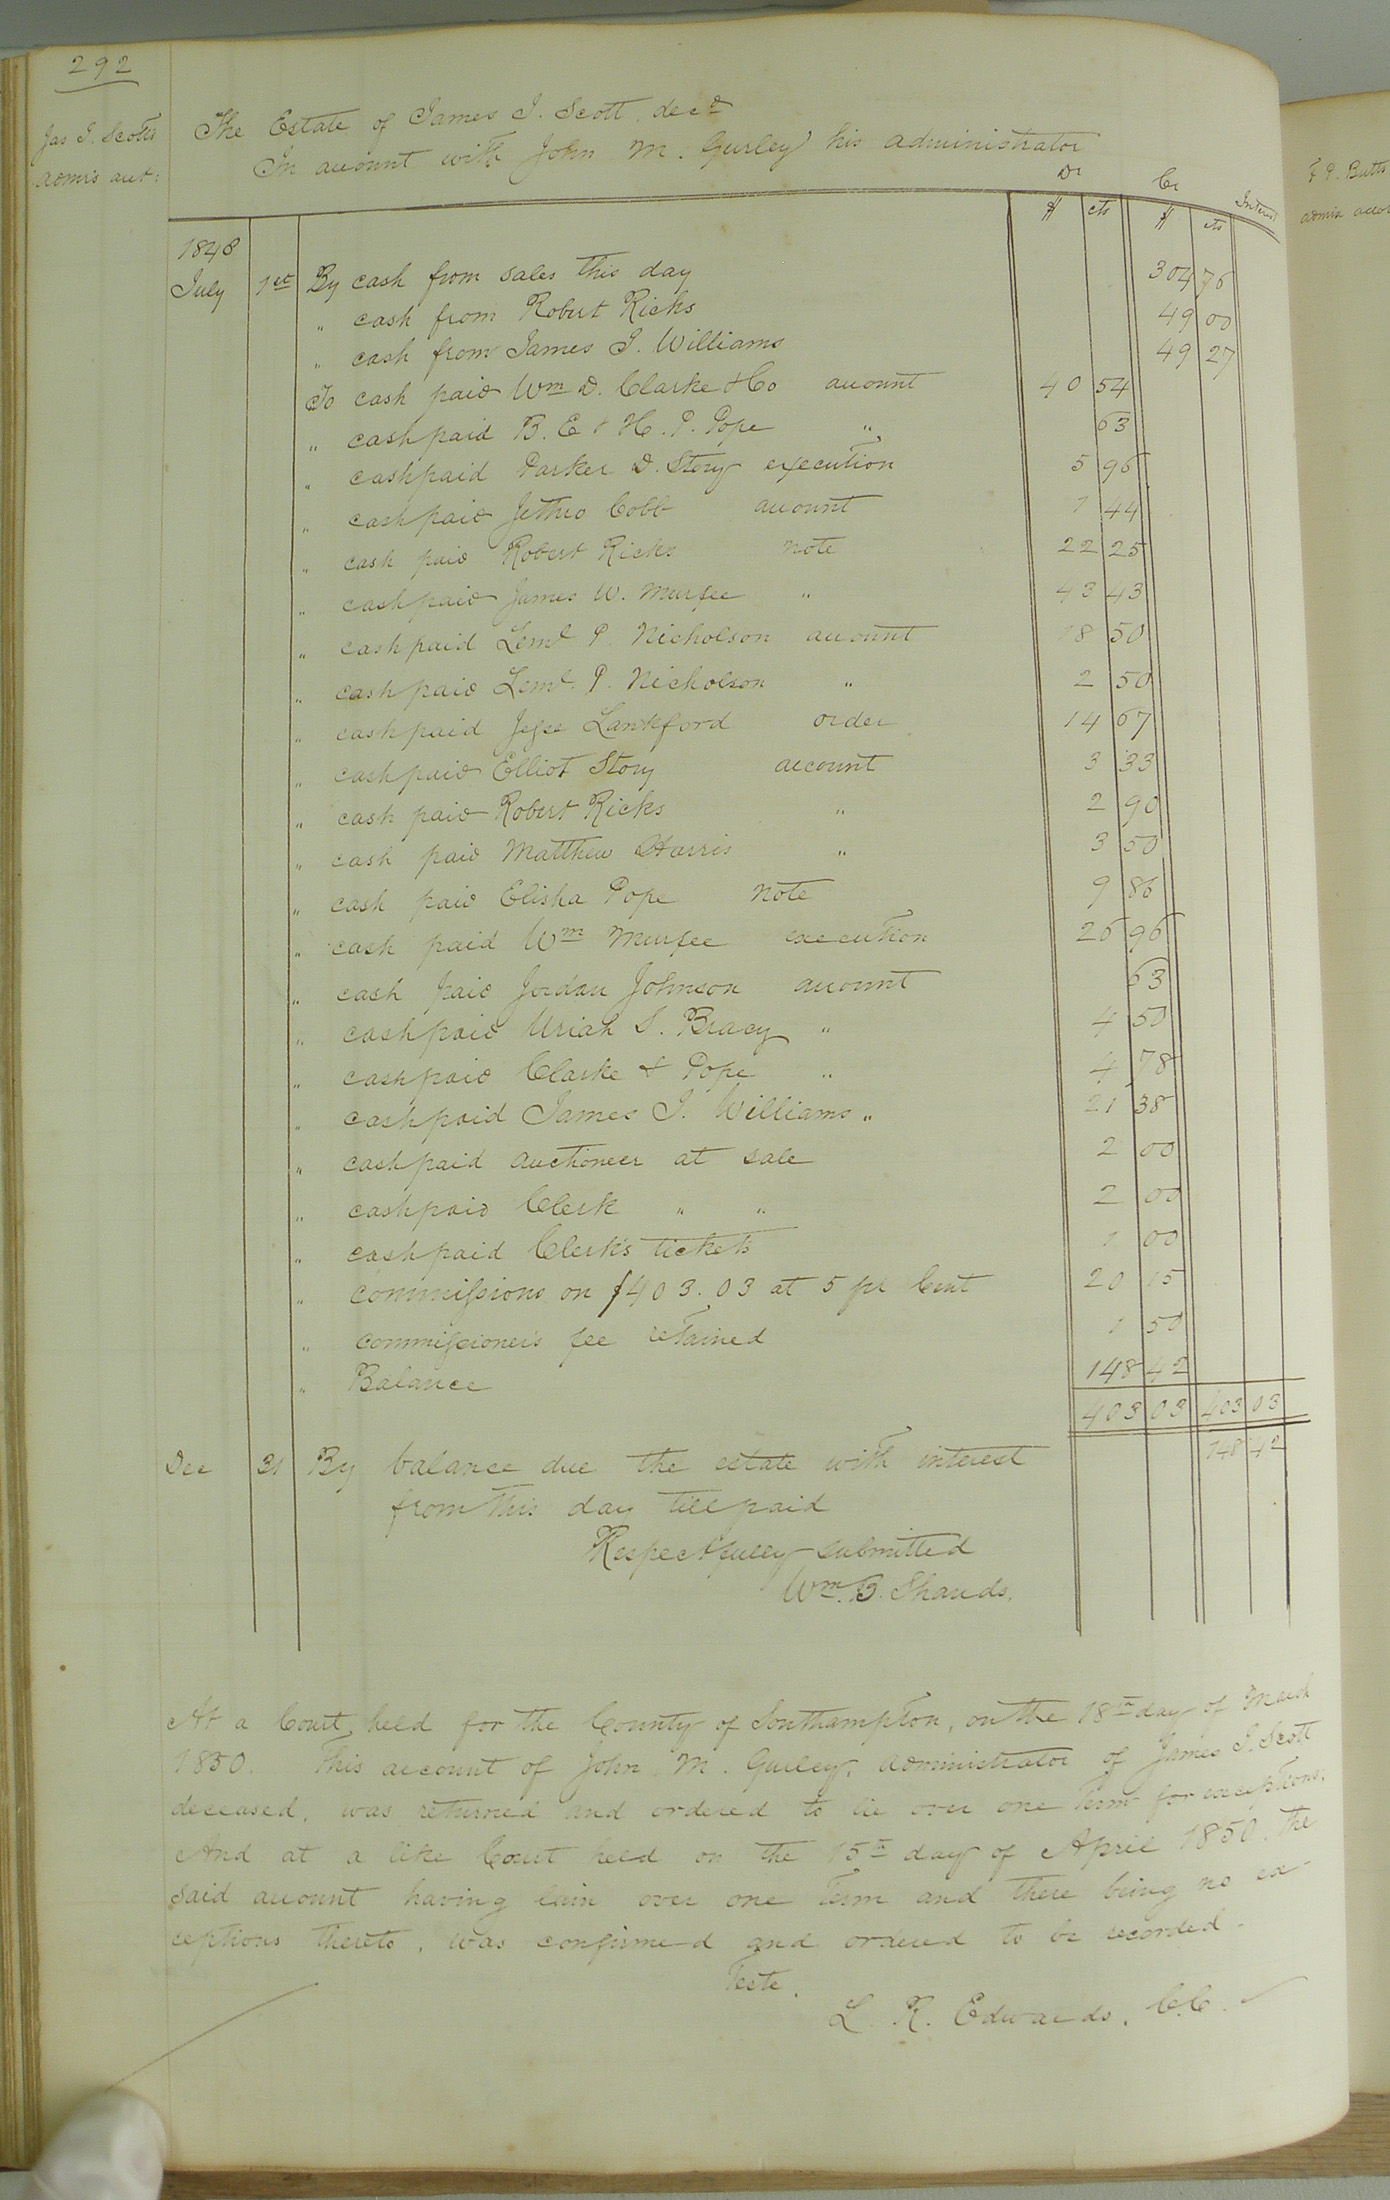 292
Jas J. Scotts
admr's acct:
The Estate of James J. Scott, decd
In account with John M. Gurley his administrator
Dr Cr Interest
$ cts $ cts
1848
July 1st By cash from sales this day 304 76
" cash from Robert Ricks 49 00
" cash from James J. Williams 49 27
To cash paid Wm D. Clarke & Co account 40 54
" cash paid B. E & H. P. Pope " 63
" cash paid Parker D. Story execution 5 96
" cash paid Jethro Cobb account 1 44
" cash paid Robert Ricks note 22 25
" cash paid James W. Murfee " 43 43
" cash paid Leml P. Nicholson account 18 50
" cash paid Leml. P. Nicholson " 2 50
" cash paid Jesse Lankford order 14 67
" cash paid Elliot Story account 3 33
" cash paid Robert Ricks " 2 90
" cash paid Matthew Harris " 3 50
" cash paid Elisha Pope note 9 86
" cash paid Wm Murfee execution 26 96
" cash paid Jordan Johnson account 63
" cash paid Uriah S. Bracy " 4 50
" cash paid Clarke & Pope " 4 78
" cash paid James J. Williams " 21 38
" cash paid auctioneer at sale 2 00
" cash paid Clerk " " 2 00
" cash paid Clerk's tickets 1 00
" commissions on $403.03 at 5 pr Cent 20 15
" commissioner's fee retained 1 50
" Balance 148 42
403 03 403 03
Dec 31 By balance due the estate with interest 148 42
from this day till paid
Respectfully submitted
Wm. B. Shands.
At a Court held for the County of Southampton, on the 18th day of March
1850. This account of John M. Gurley, administrator of James J. Scott
deceased, was returned and ordered to lie over one Term for exceptions.
And at a like Court held on the 15th day of April 1850. the
said account having lain over one Term and there being no ex-
ceptions thereto, was confirmed and ordered to be recorded.
Teste,
L. R. Edwards, C.C.
F. P. Butts
admix accou